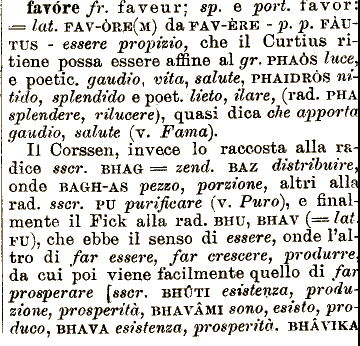 favóre fr. faveur; sp. e port. favor:
= lat. FAV-ÒRE(M) da FAV-ÈRE - p. p. FÀU-
TUS - essere propizio, che il Curtius ri-
tiene possa essere affine al gr. PHAÒS luce,
e poetic. gaudio, vita, salute, PHAIDRÒS ni-
tido, splendido e poet. lieto, ilare, (rad. PHA
splendere, rilucere), quasi dica che apporta
gaudio, salute (v. Fama).
Il Corssen, invece lo raccosta alla ra-
dice sscr. BHAG = zend. BAZ distribuire,
onde BAGH-AS pezzo, porzione, altri alla
rad. sscr. PU purificare (v. Puro), e final-
mente il Fick alla rad. BHU, BHAV (= lat.
FU), che ebbe il senso di essere, onde l'al-
tro di far essere, far crescere, produrre,
da cui poi viene facilmente quello di far
prosperare [sscr. BHÛTI esistenza, produ-
zione, prosperità, BHAVÂMI sono, esisto, pro-
duco, BHAVA esistenza, prosperità. BHÂVIKA